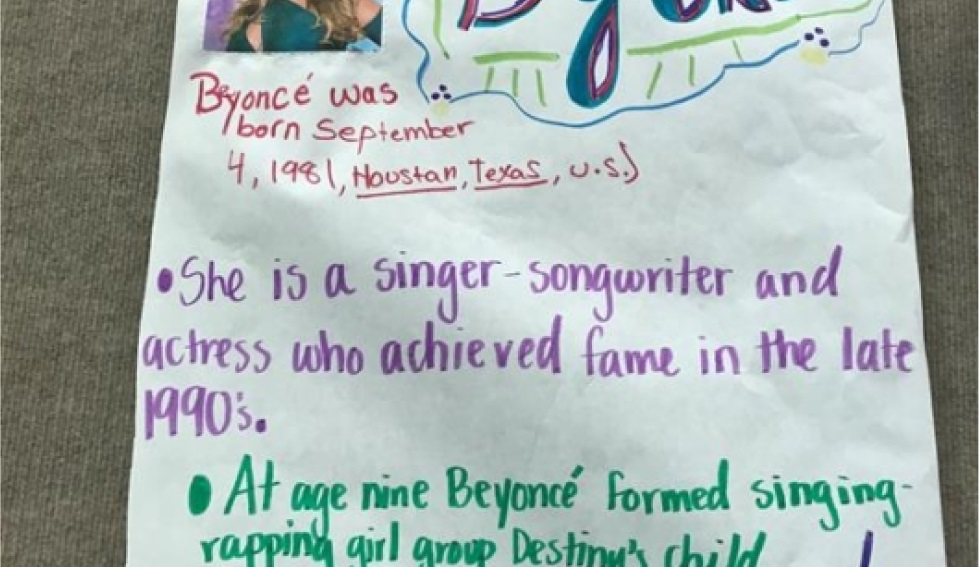 Beyoncé was
born September
4, 1981, Houstan, Texas, U.S.)
•She is a singer-songwriter and
actress who achieved fame in the late
1990's.
• At age nine Beyoncé formed singing-
rapping girl group Destiny's child